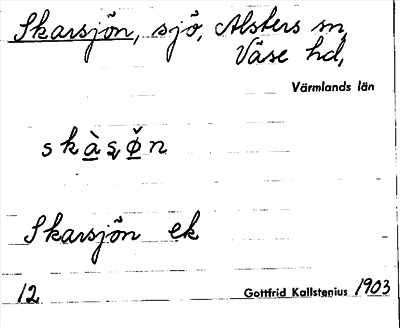 Skarsjön, sjö, Alsters sn,
Väse hd,
Värmlands län
skàʂø̌n
Skarsjön ek
12 Gottfrid Kallstenius 1903